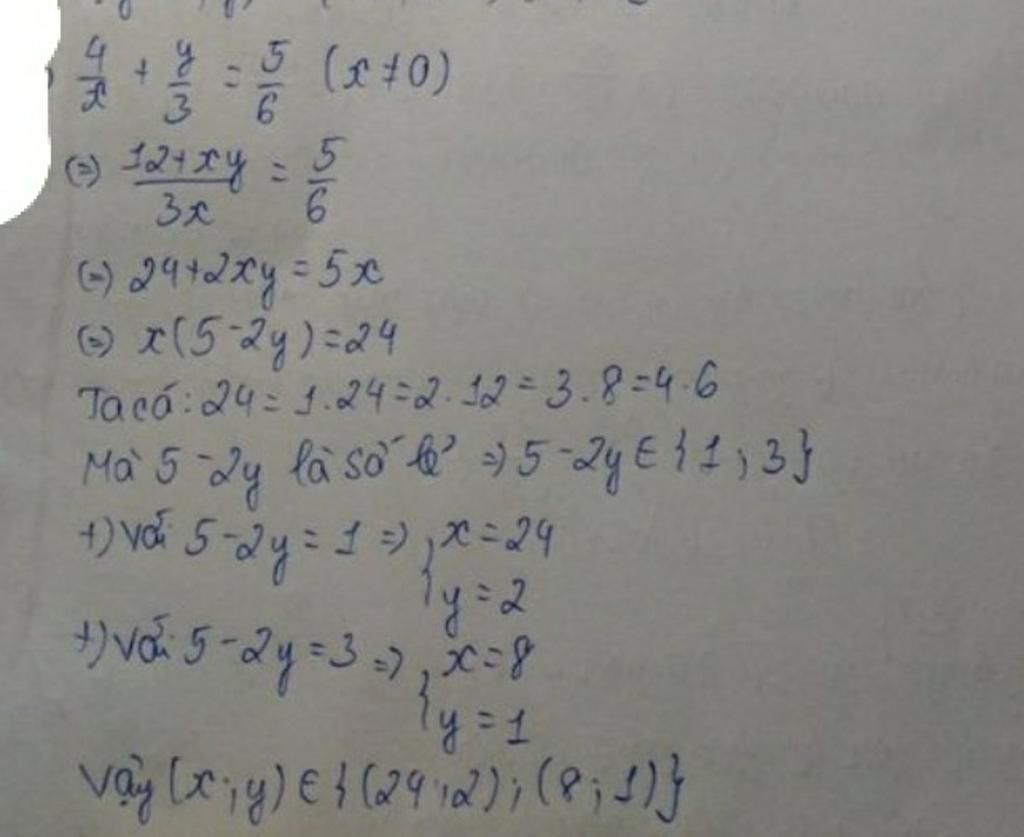 4/x + y/3 = 5/6 (x ≠ 0)
(=) 12+xy/3x = 5/6
(=) 24+2xy = 5x
(=) x(5-2y)=24
Ta có: 24 = 1.24 = 2.12 = 3.8 = 4.6
Mà 5-2y là số lẻ => 5-2y ∈ {1; 3}
+) Với 5-2y = 1 => { x = 24
y = 2
+) Với 5-2y = 3 => { x = 8
y = 1
Vậy (x; y) ∈ {(24; 2); (8; 1)}